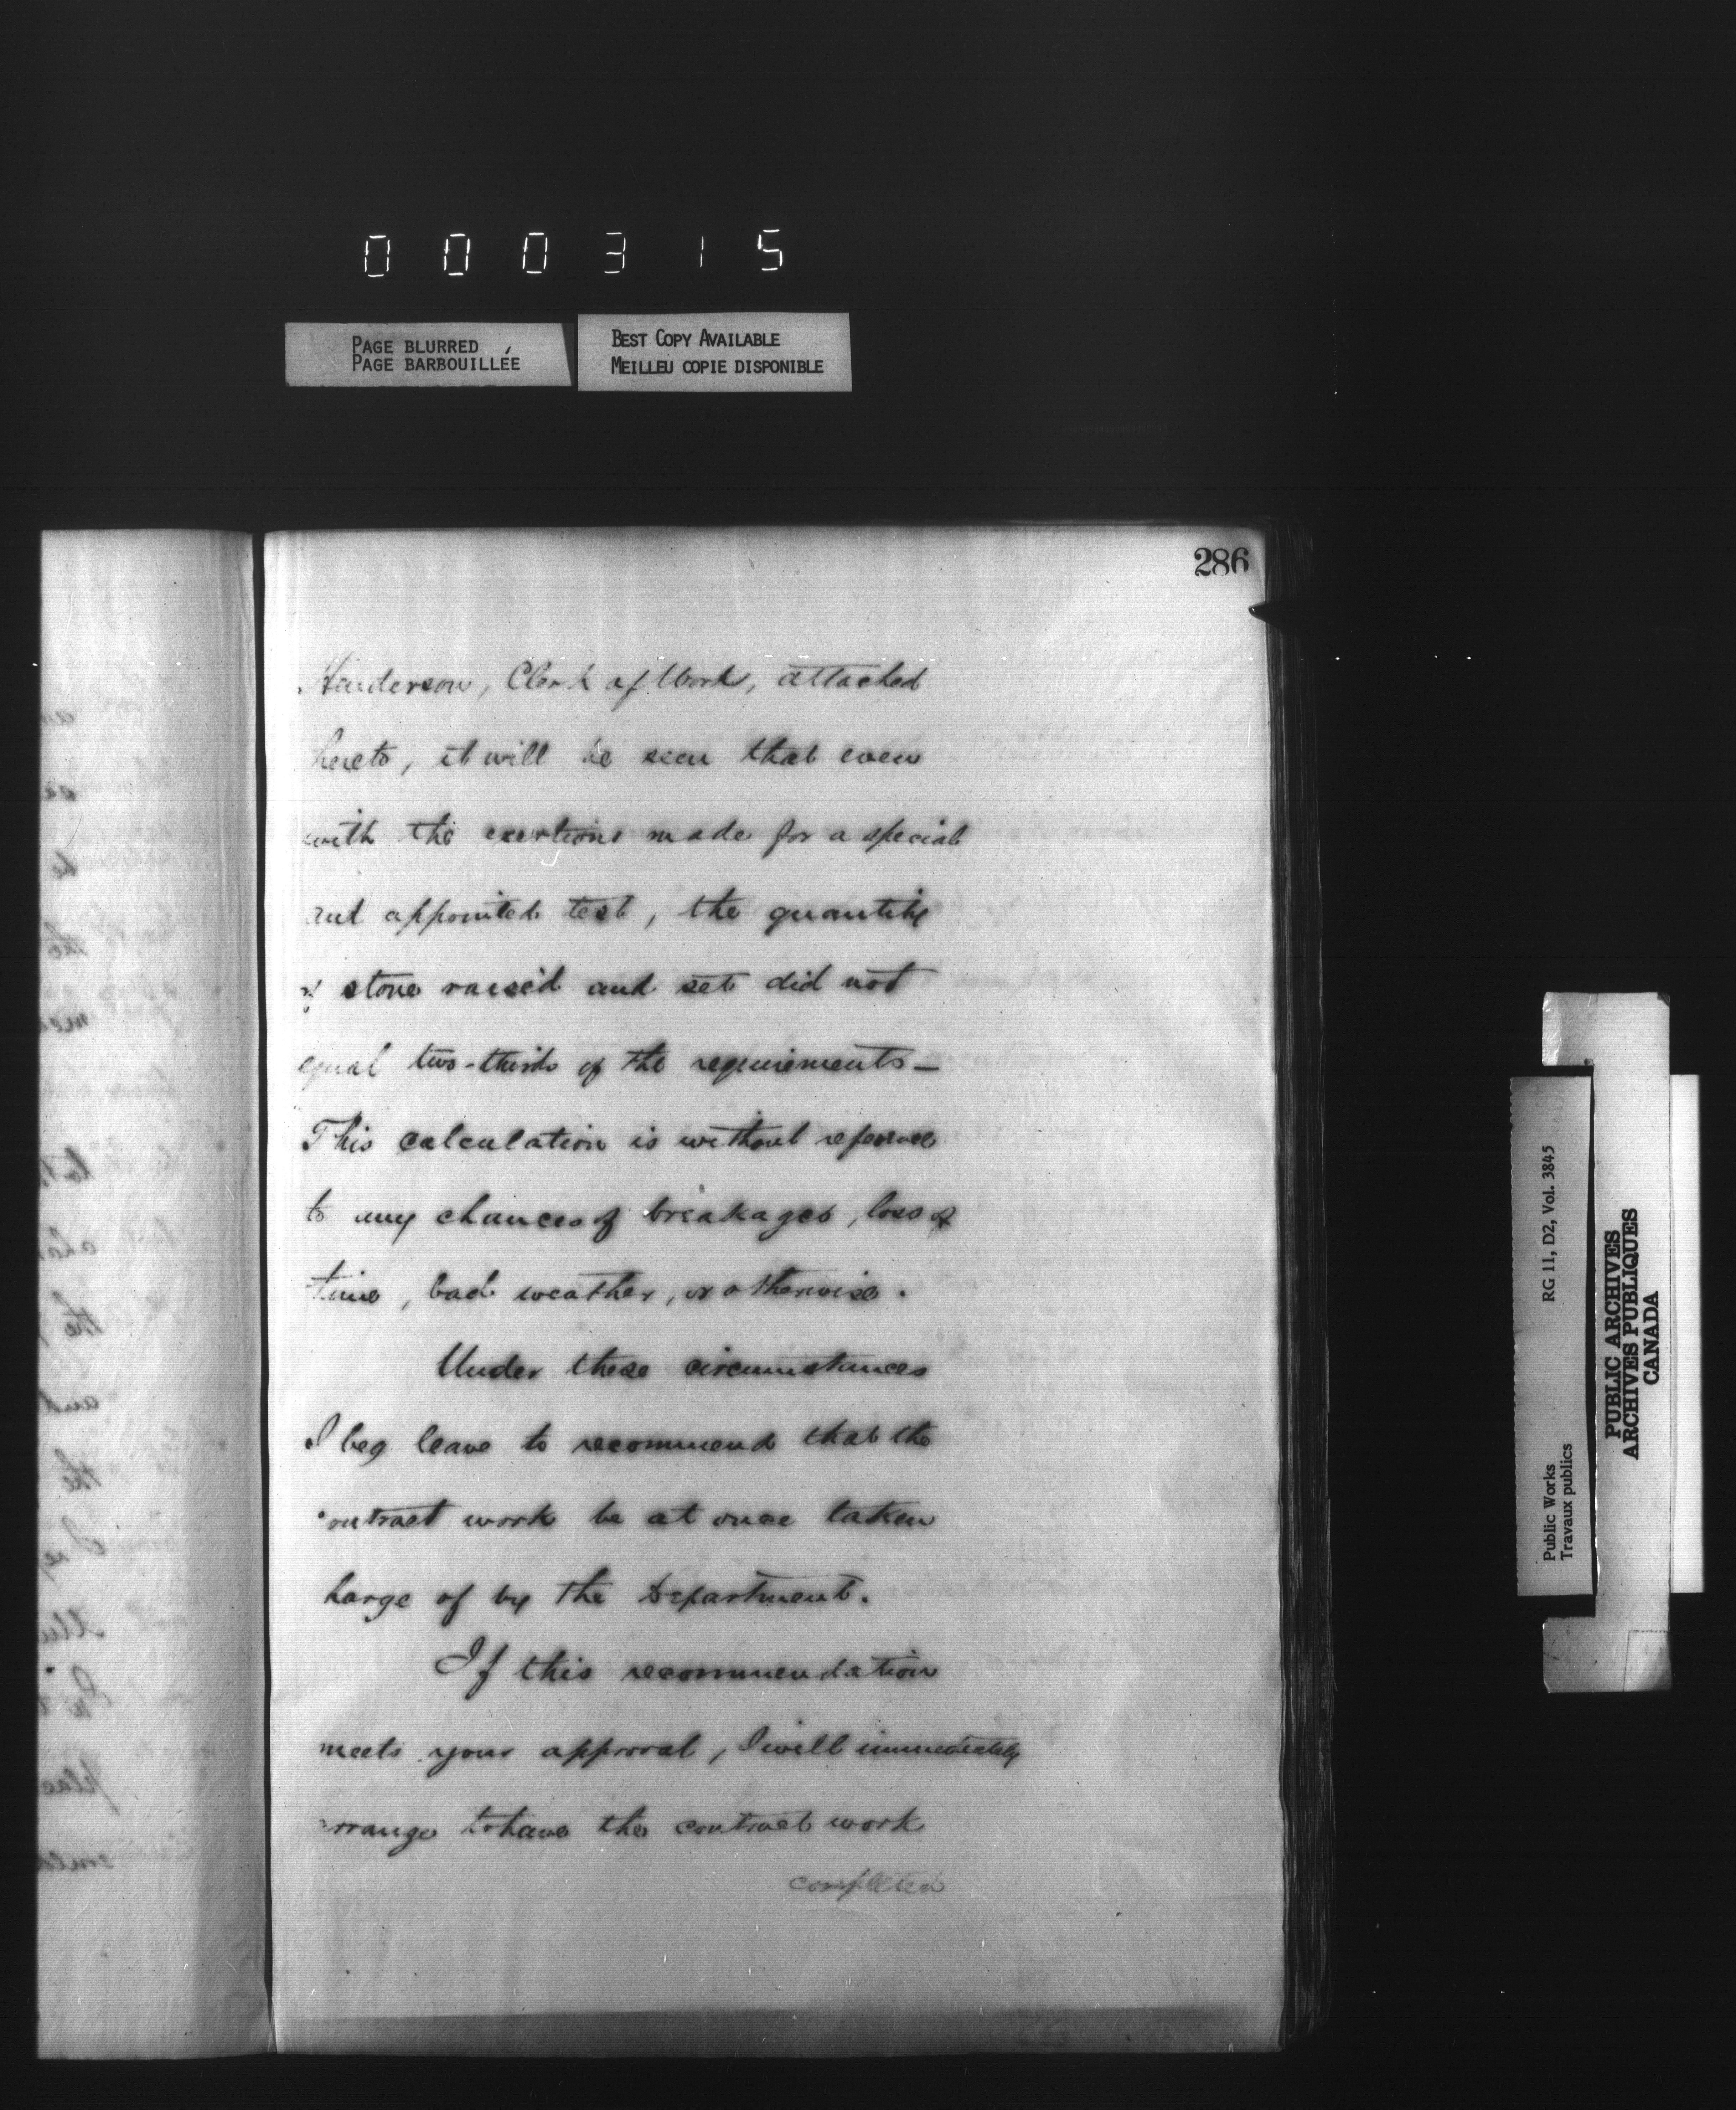 000315
PAGE BLURRED
PAGE BARBOUILLÉE
BEST COPY AVAILABLE
MEILLEU COPIE DISPONIBLE
286
Henderson, Clerk of Works, attached
hereto, it will be seen that even
with the exertions made for a special
and appointed test, the quantity
of stone raised and set did not
equal two-thirds of the requirements—
This calculation is without reference
to any chances of breakages, loss of
time, bad weather, or otherwise.
Under these circumstances
I beg leave to recommend that the
contract work be at once taken
harge of by the Department.
If this recommendation
meets your approval, I will immediately
arrange to have the contract work
completed
Public Works
Travaux publics
RG 11, D2, Vol. 3845
PUBLIC ARCHIVES
ARCHIVES PUBLIQUES
CANADA